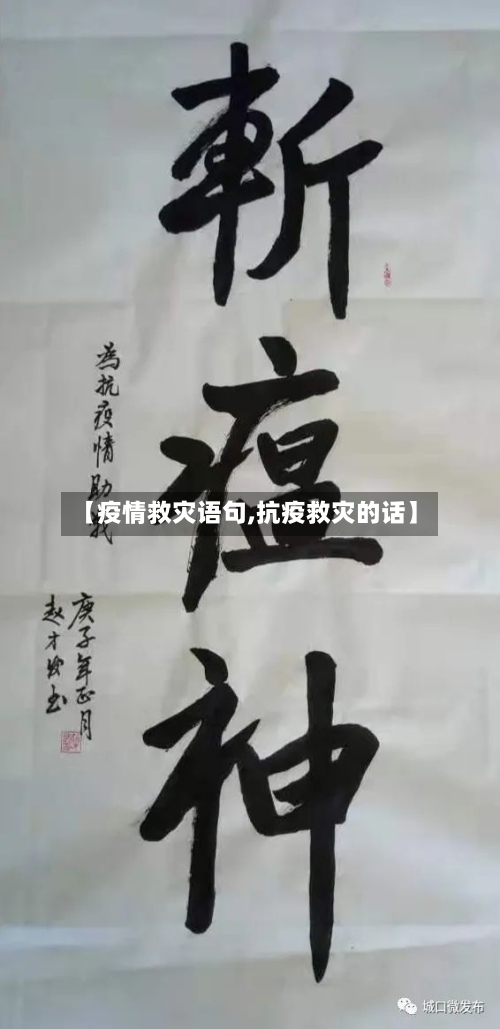 斬瘟神
為抗疫情助
庚子年正月
趙才
【疫情救灾语句,抗疫救灾的话】
城口微发布